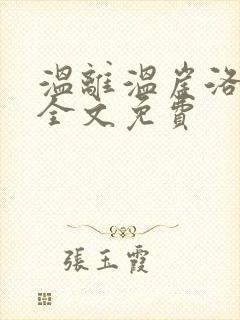 溫離溫崖洛
全文免費
張玉霞